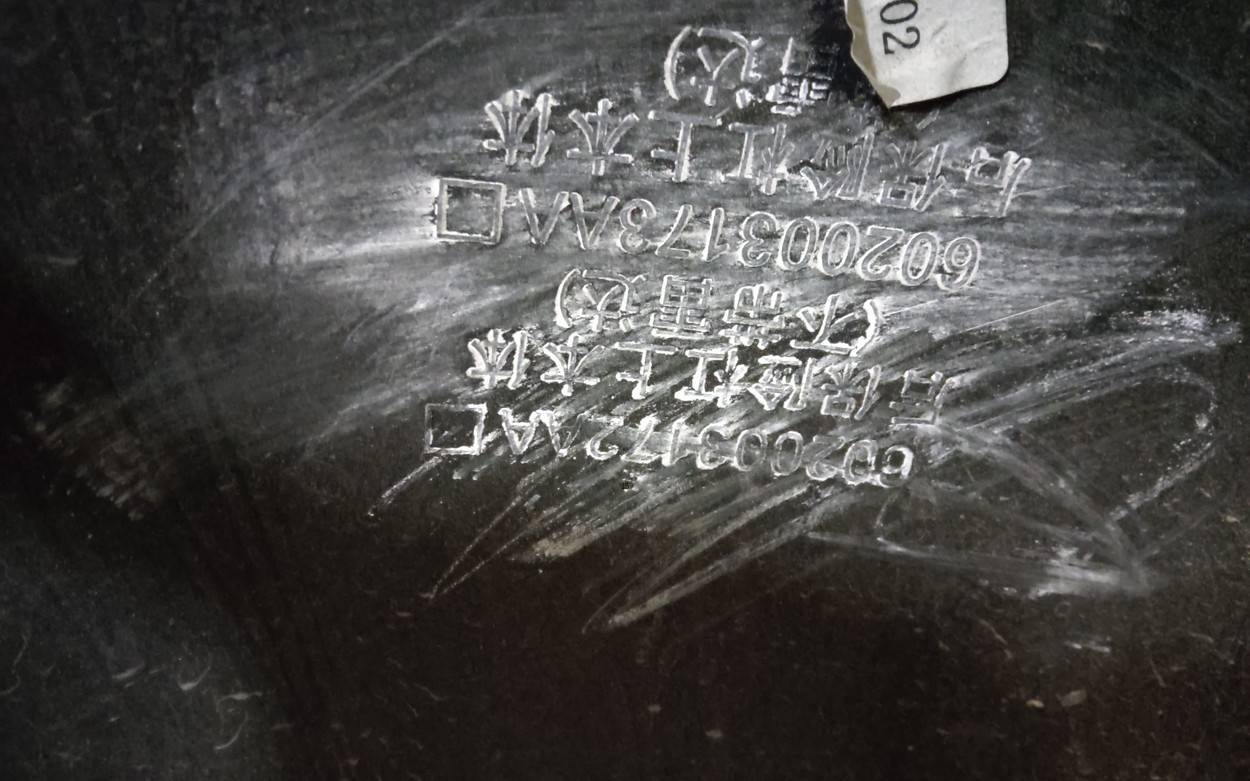 602003172AA □
后保险杠上本体
(不带雷达)
602003173AA □
后保险杠上本体
雷达)
02